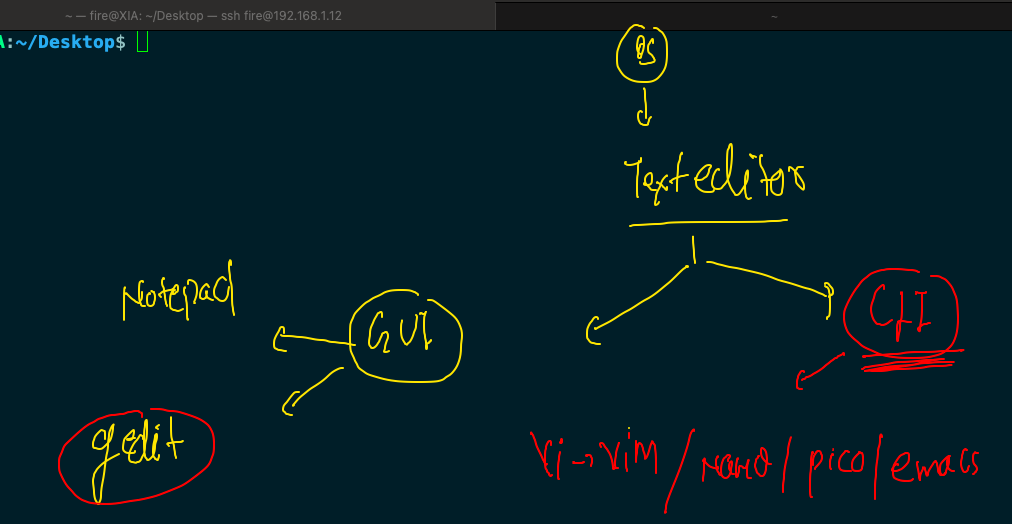 ~ — fire@XIA: ~/Desktop — ssh fire@192.168.1.12
~
A:~/Desktop$
OS
Text editor
Notepad
GUI
CLI
gedit
Vi → ViM / Nano / pico / emacs